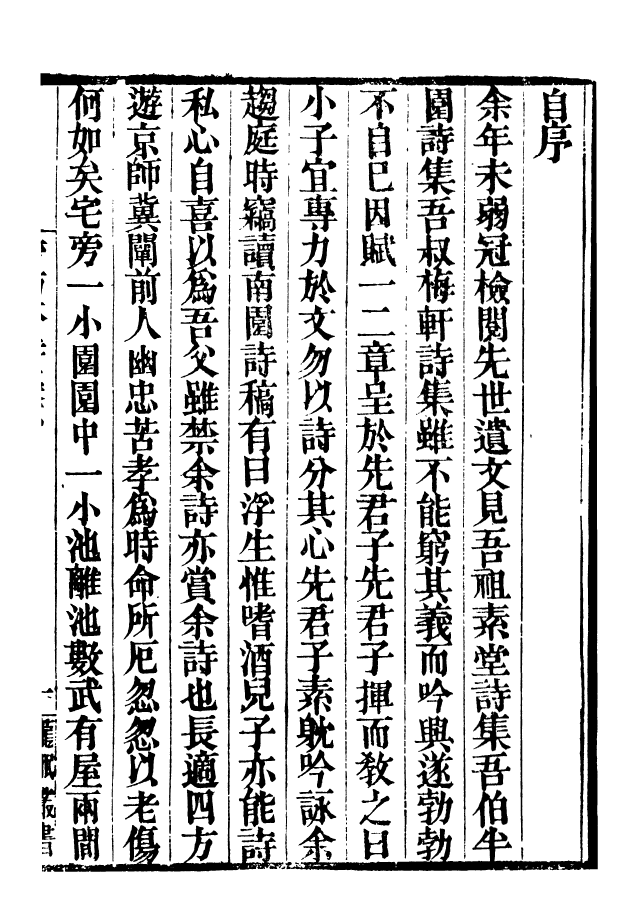 自序
余年未弱冠檢閱先世遺文見吾祖素堂詩集吾伯半
園詩集吾叔梅軒詩集雖不能窮其義而吟興遂勃勃
不自已因賦一二章呈於先君子先君子揮而敎之曰
小子宜專力於文勿以詩分其心先君子素躭吟詠余
趨庭時竊讀南園詩稿有曰浮生惟嗜酒兒子亦能詩
私心自喜以爲吾父雖禁余詩亦賞余詩也長適四方
遊京師冀闡前人幽忠苦孝爲時命所厄忽忽以老傷
何如矣宅旁一小園園中一小池離池數武有屋兩間
叢書